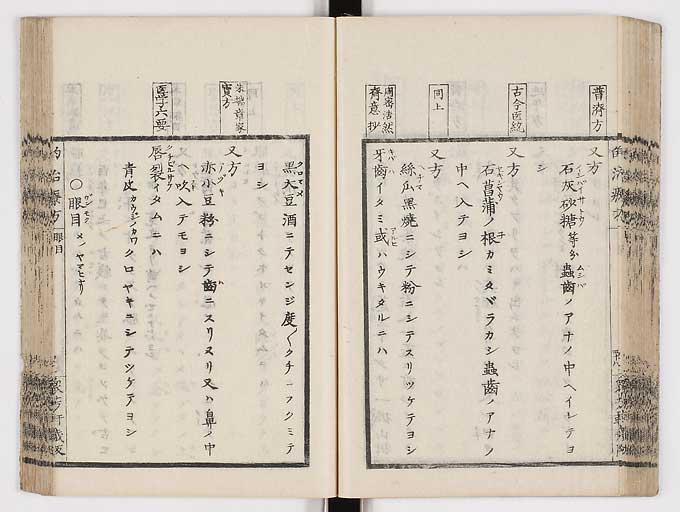 普濟方
又方
石灰砂糖等分蟲齒ノアナノ中ヘイレテヨ
シ
古今医統
又方
石菖蒲ノ根カミタヾラカシ蟲齒ノアナノ
中ヘ入テヨシ
同上
又方
絲瓜黒燒ニシテ粉ニシテスリツケテヨシ
周密浩然齊意抄
牙齒イタミ或ハウキタルニハ
黒大豆酒ニテセンジ度〱クチニフクミテ
ヨシ
又方
赤小豆粉ニシテ齒ニスリヌリ又ハ鼻ノ中
ヘ吹入テモヨシ
医学六要
唇裂イタムニハ
青皮クロヤキニシテツケテヨシ
〇眼目